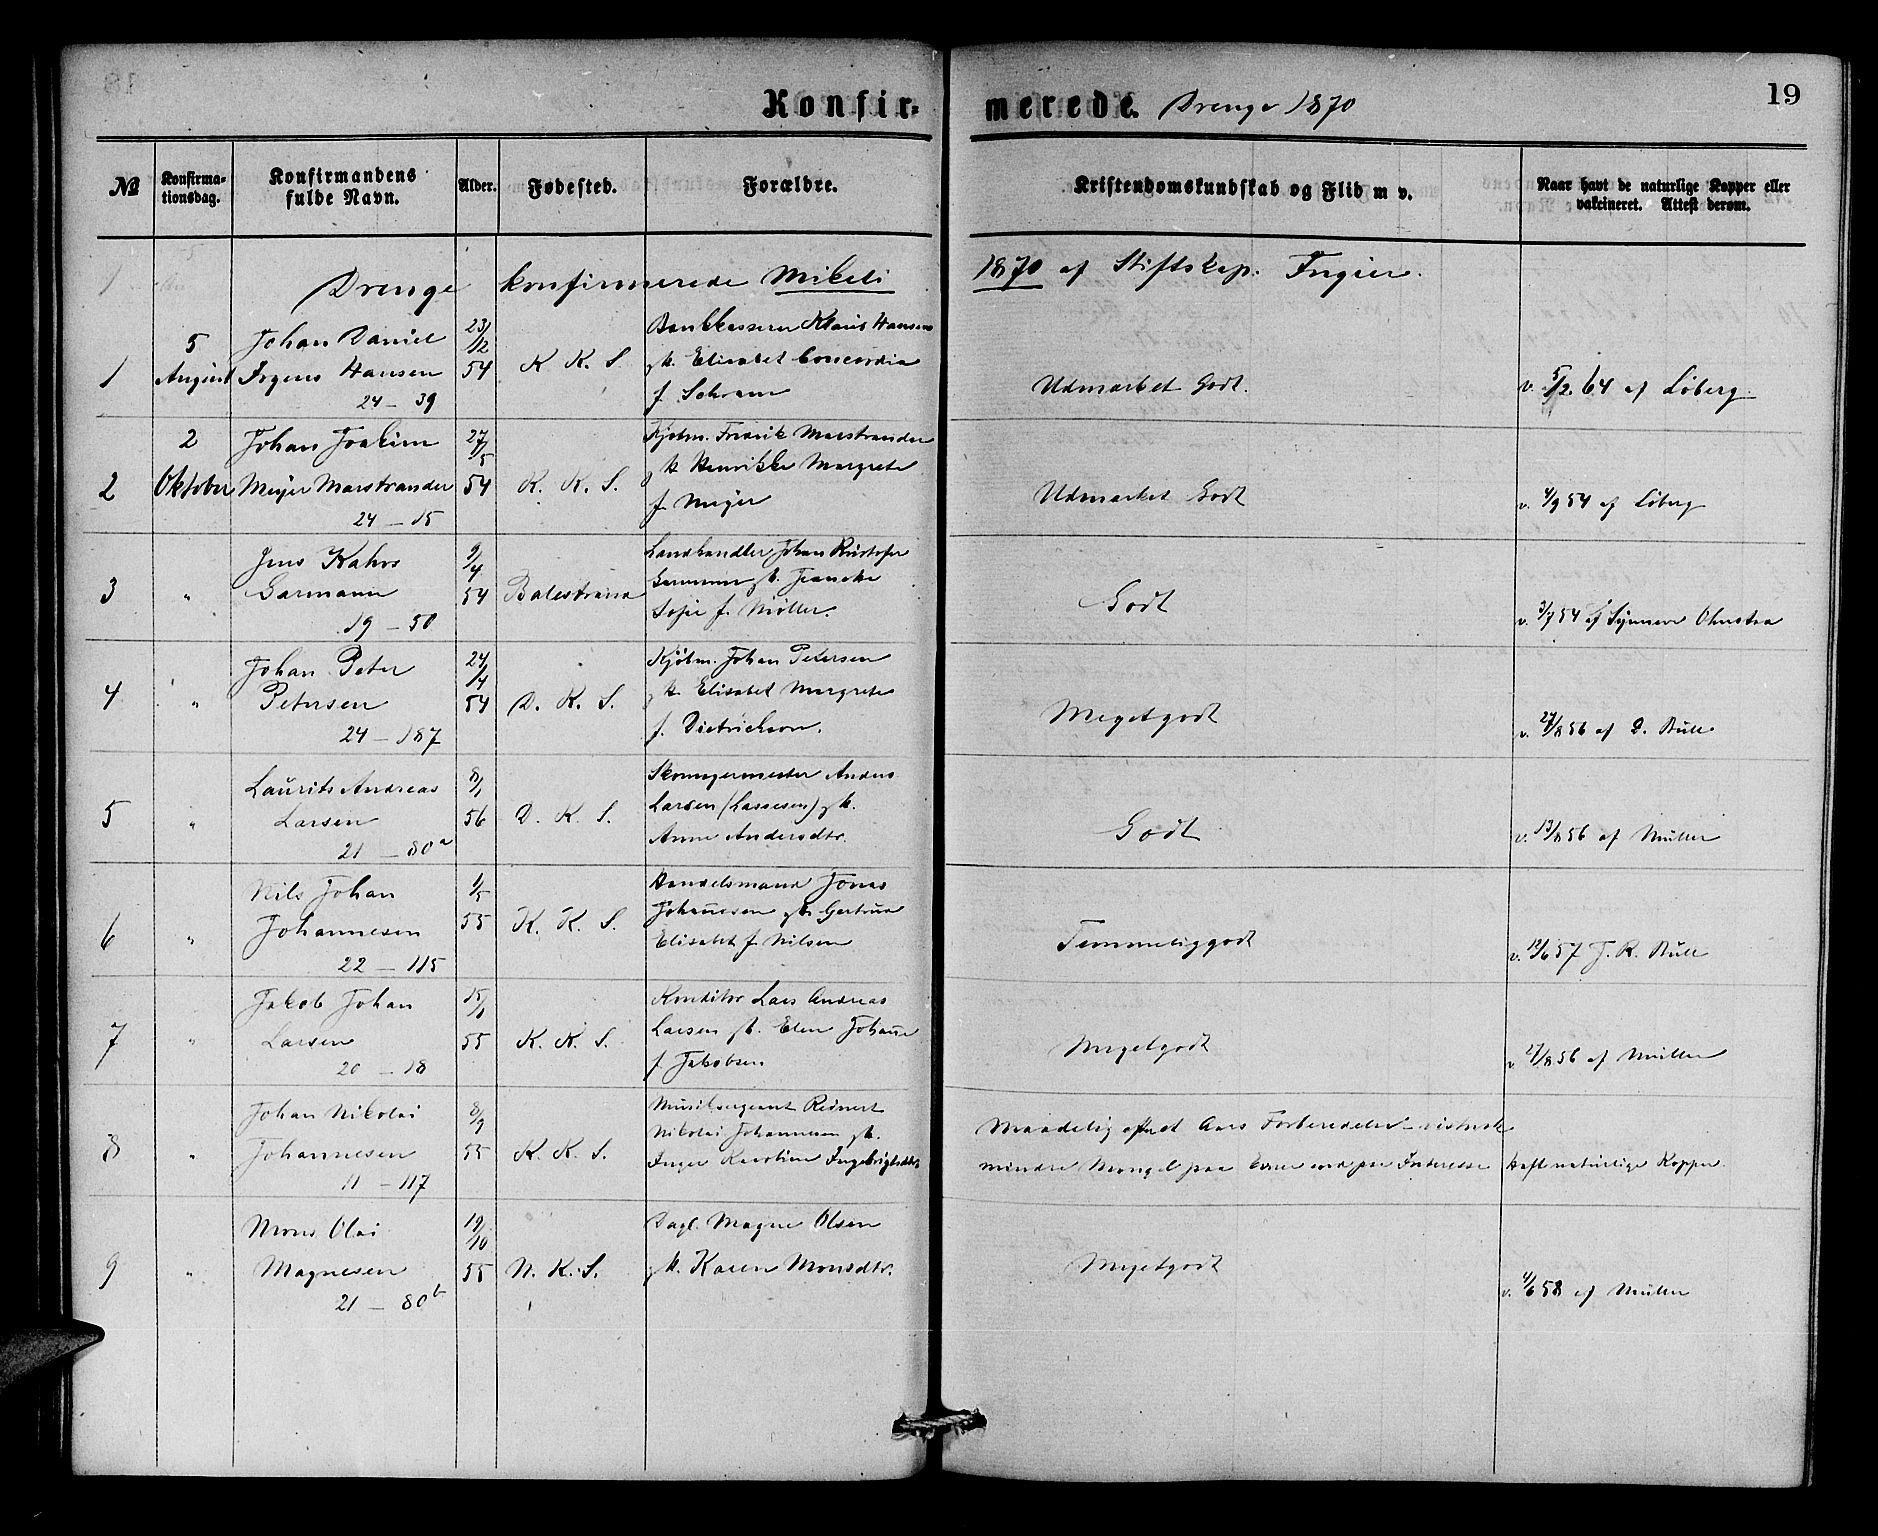 Konfir- merede. Drenge 1870 19
№ Konfirma-tionsdag. Konfirmandens fulde Navn. Alder. Fødested. Forældre. Kristendomskundskab og Flid m v. Naar havt de naturlige Kopper eller vakcineret. Attest derom.
Drenge konfirmerede Mikeli 1870 af Stiftskap.
1
5 August
Johan Daniel
Hansen
24 - 39
23/12 54
K K. S.
Hansen
gh. Elisabet Concordia
f. Schram
Udmærket Godt.
v. 5/2 64 af Løberg.
2
2 Oktober
Johan Joakim
Meyer Marstrander
24 - 15
27/5 54
K. K. S.
Kjøbm. Fredrik Marstrander
gh Henrikke Margrete
f. Meyer
Udmærket Godt
v. 4/9 54 af Løberg
3
"
Jens Kahrs
Garmann
19 - 50
9/4 54
Balestrand
Landhandler Johan Kristofer
Garmann gh.
Sofie f. Møller.
Godt
v. 3/9 54 af Synneve
4
"
Johan Peter
Petersen
24 - 187
24/4 54
D. K. S.
Kjøbm. Johan Petersen
gh. Elisabet Margrete
f. Dietrichson.
Megetgodt
v. 27/8 56 af Bull
5
"
Laurits Andreas
Larsen
21 - 80a
8/1 56
D. K. S.
Skomagermester Anders
Larsen (Lassesen) gh.
Anne Andersdtr.
Godt
v. 13/8 56 af Müller
6
"
Nils Johan
Johannesen
22 - 115
1/5 55
K. K. S.
Handelsmand Jonas
Johanesen gh. Gertrud
Elisabet f. Nilsen
Temmeliggodt
v. 12/6 57 J. R. Bull
7
"
Jakob Johan
Larsen
20 - 18
55
K. K. S.
Konditor Lars Andreas
Larsen gh. Elen
f. Jakobsen
Megetgodt
v. 27/8 56 af Müller
8
"
Johan Nikolai
Johannesen
11 - 117
8/9 55
K. K. S.
Musiksergeant Reinert
Nikolai Johannesen gh.
Inger Karoline Ingebrigtsdtr.
Maadelig efter et Aars Forberedelse
mindre Mangel paa Evner end paa Interesse
Haft naturlige Kopper.
9
"
Mons Olai
Magnesen
21 - 80b
19/10 55
N. K. S.
Dagl. Magne Olsen
gh. Karen Monsdtr.
Megetgodt
v. 4/6 58 af Müller